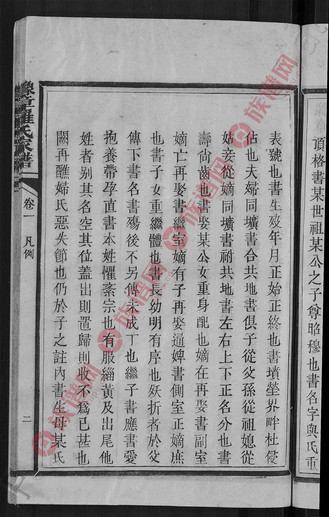 頂格書某世祖某公之子尊昭穆也書名字與氏重
表號也書生歿年月正始正終也書墳塋界畔杜侵
佔也夫婦同壙書合共地書俱子從父孫從祖媳從
姑妾從嫡同壙書祔共地書左右上下正名分也書
壽尚齒也書娶某公女重身配也嫡在再娶書副室
嫡亡再娶書繼室嫡有子再娶過婢書側室正嫡庶
也書子女重繼體也書長幼明有序也殀折者於父
傳下書名書殤後不另傳未成丁也繼子書應書愛
抱養帶孕直書本姓懼紊宗也有服緇黃及出尾他
姓者別其名空其位蓋出則置歸則收不為已甚也
闕再醮婦氏惡失節也仍於子之註內書生母某氏
豫章羅氏家譜
卷一
凡例
二
族譜网
族譜网
族譜网